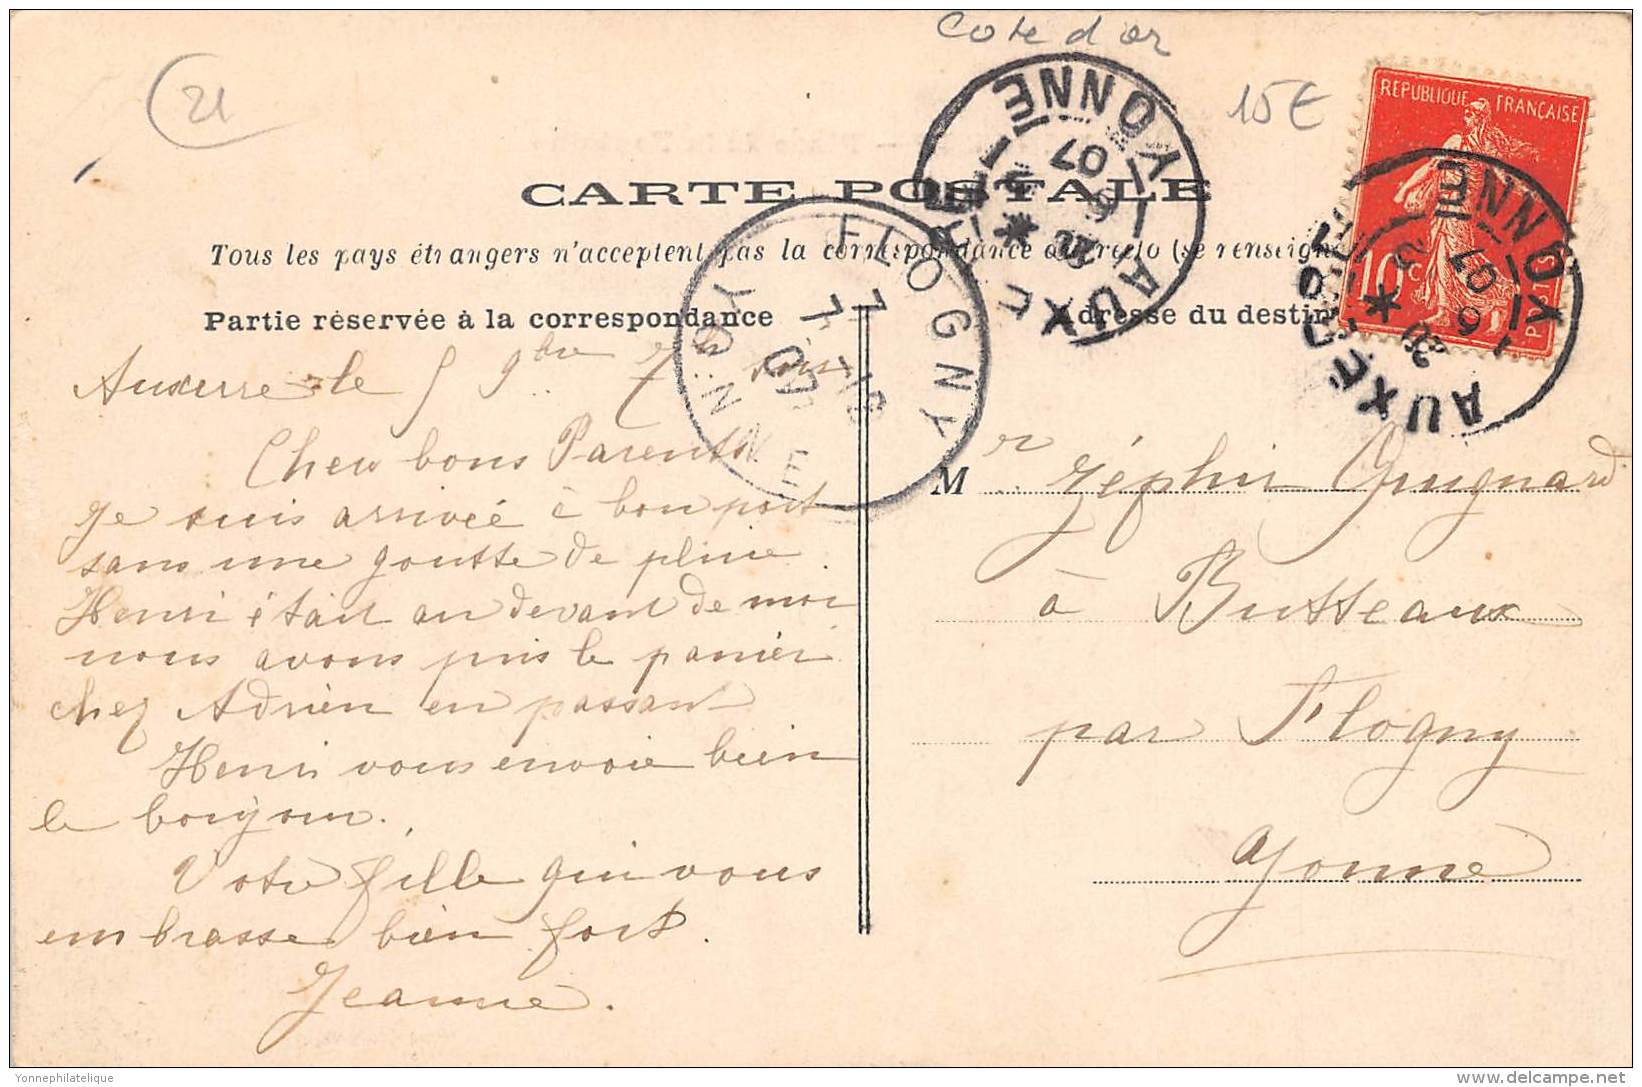 Cote d'or
21
15€
REPUBLIQUE FRANÇAISE
10c
POSTES
AUXERRE YONNE
6 - 9
07
AUXERRE YONNE
6
07
FLOGNY
7
7 - 9
07
YONNE
CARTE POSTALE
Tous les pays étrangers n'acceptent pas la correspondance au recto (se renseigne
Partie réservée à la correspondance
Adresse du destin
Auxerre le 5 9bre 7h
Cher bons Parents
Je suis arrivée à bon port
sans une goutte de pluie.
Henri était au devant de moi
nous avons pris le panier
chez Adrien en passant
Henri vous envoie bien
le bonjour.
Votre fille qui vous
embrasse bien fort.
Jeanne.
Mr Zéphir Guignard
à Butteaux
par Flogny
Yonne
Yonnephilatelique
delcampe.net